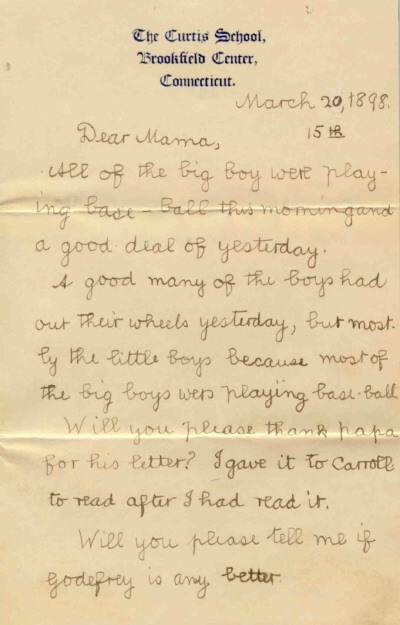 The Curtis School,
Brookfield Center,
Connecticut.
March 20, 1898.
15th
Dear Mama,
All of the big boy were play-
ing base-ball this morning and
a good deal of yesterday.
A good many of the boys had
out their wheels yesterday, but most-
ly the little boys because most of
the big boys wers playing base-ball
Will you please thank papa
for his letter? I gave it to Carroll
to read after I had read it.
Will you please tell me if
Godefrey is any better.